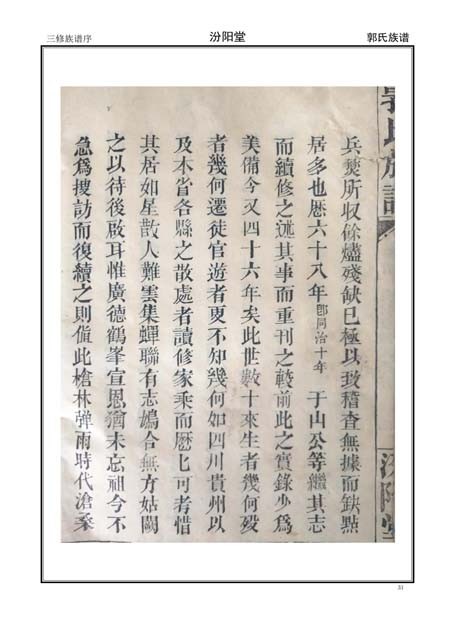 三修族谱序
汾阳堂
郭氏族谱
郭氏族譜
汾陽堂
兵燹所収餘燼殘缺已極以致稽查無據而缺點
居多也歴六十八年即同治十年于山公等繼其志
而續修之述其事而重刊之較前此之實錄少爲
美備今又四十六年矣此世數十來生者幾何殁
者幾何遷徒官遊者更不知幾何如四川貴州以
及本省各縣之散處者讀修家乘而厯匕可考惜
其居如星散人難雲集蟬聯有志鳩合無方姑闕
之以待後啟耳惟廣德鶴峯宣恩猶未忘祖今不
急爲搜訪而復續之則値此槍林彈雨時代滄桑
31